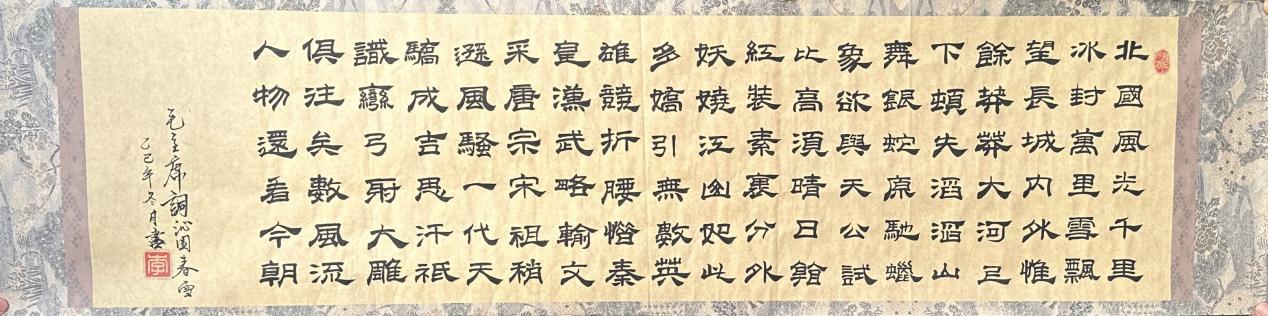 北國風光千里
冰封萬里雪飄
望長城内外惟
餘莽莽大河上
下頓失滔滔山
舞銀蛇原馳蠟
象欲與天公試
比高須晴日
紅裝素裹分外
妖嬈江山如此
多嬌引無數英
雄競折腰惜秦
皇漢武略輸文
采唐宗宋祖稍
遜風騷一代天
驕成吉思汗祇
識彎弓射大雕
俱往矣數風流
人物還看今朝
毛主席詞沁園春雪
乙巳年冬月書
李